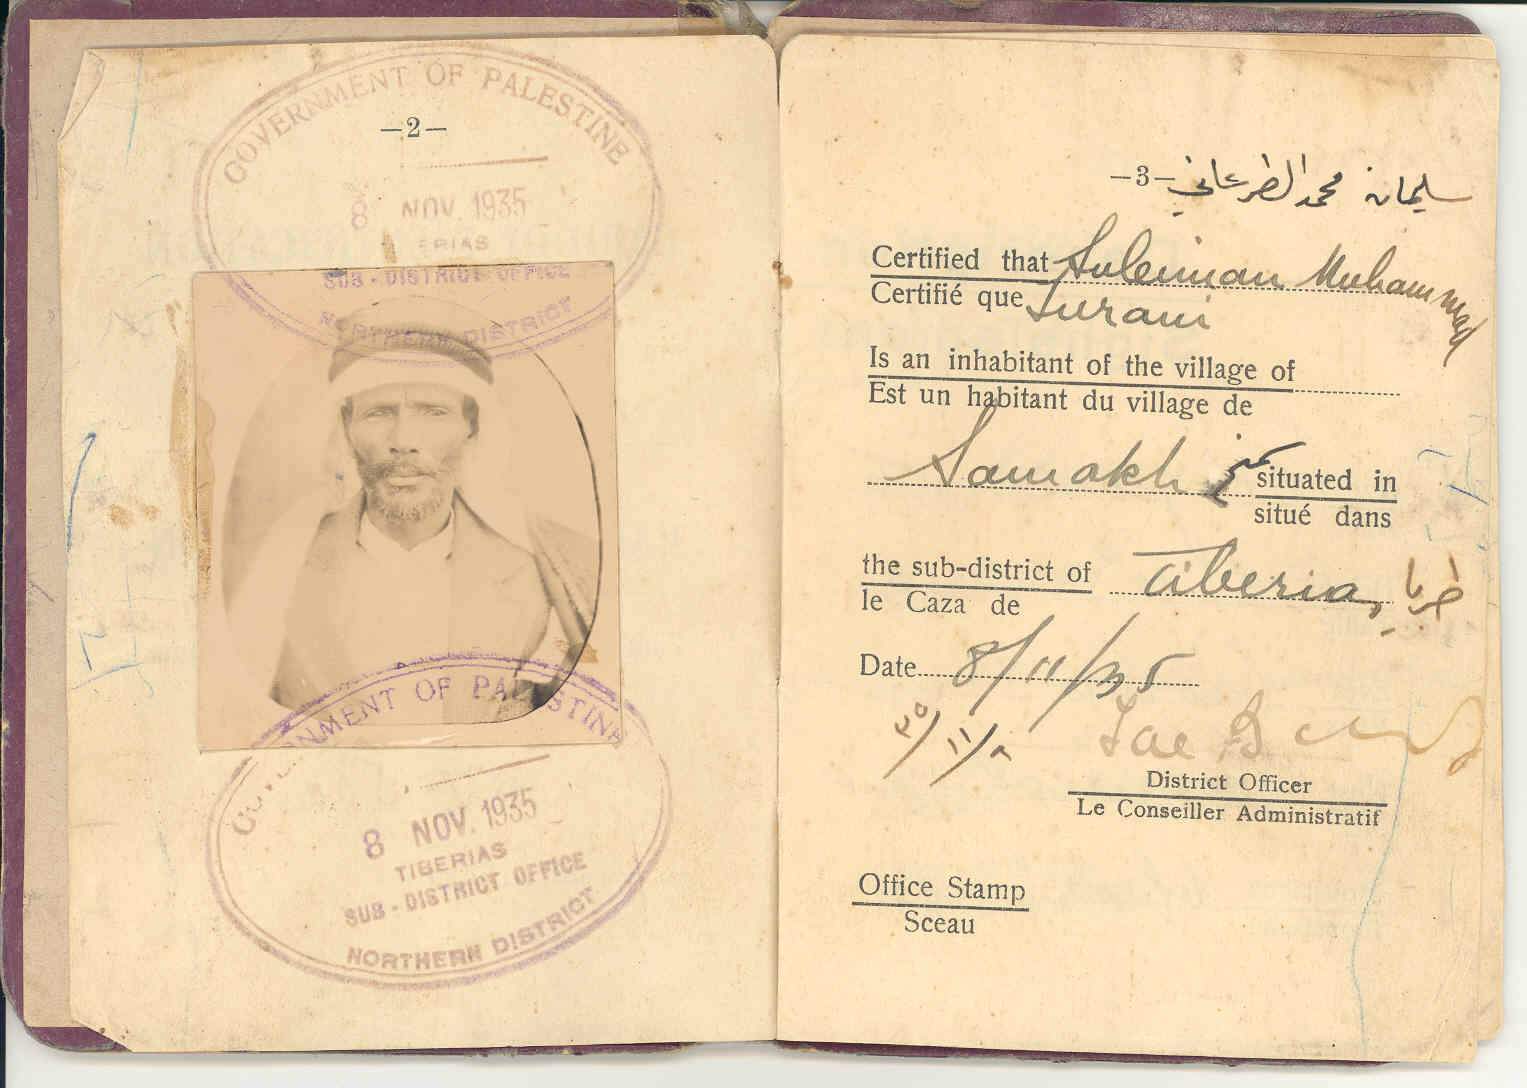 GOVERNMENT OF PALESTINE
—2—
8 NOV. 1935
ERIAS
SUB - DISTRICT OFFICE
NORTHERN DISTRICT
NMENT OF PALESTINE
8 NOV. 1935
TIBERIAS
SUB - DISTRICT OFFICE
NORTHERN DISTRICT
—3— سليمان محمد
Certified that Suleiman Muhammad
Certifié que
Is an inhabitant of the village of
Est un habitant du village de
Samakh سمخ situated in
situé dans
the sub-district of Tiberias
le Caza de
Date 8/11/35
٣٥/١١/٨
District Officer
Le Conseiller Administratif
Office Stamp
Sceau